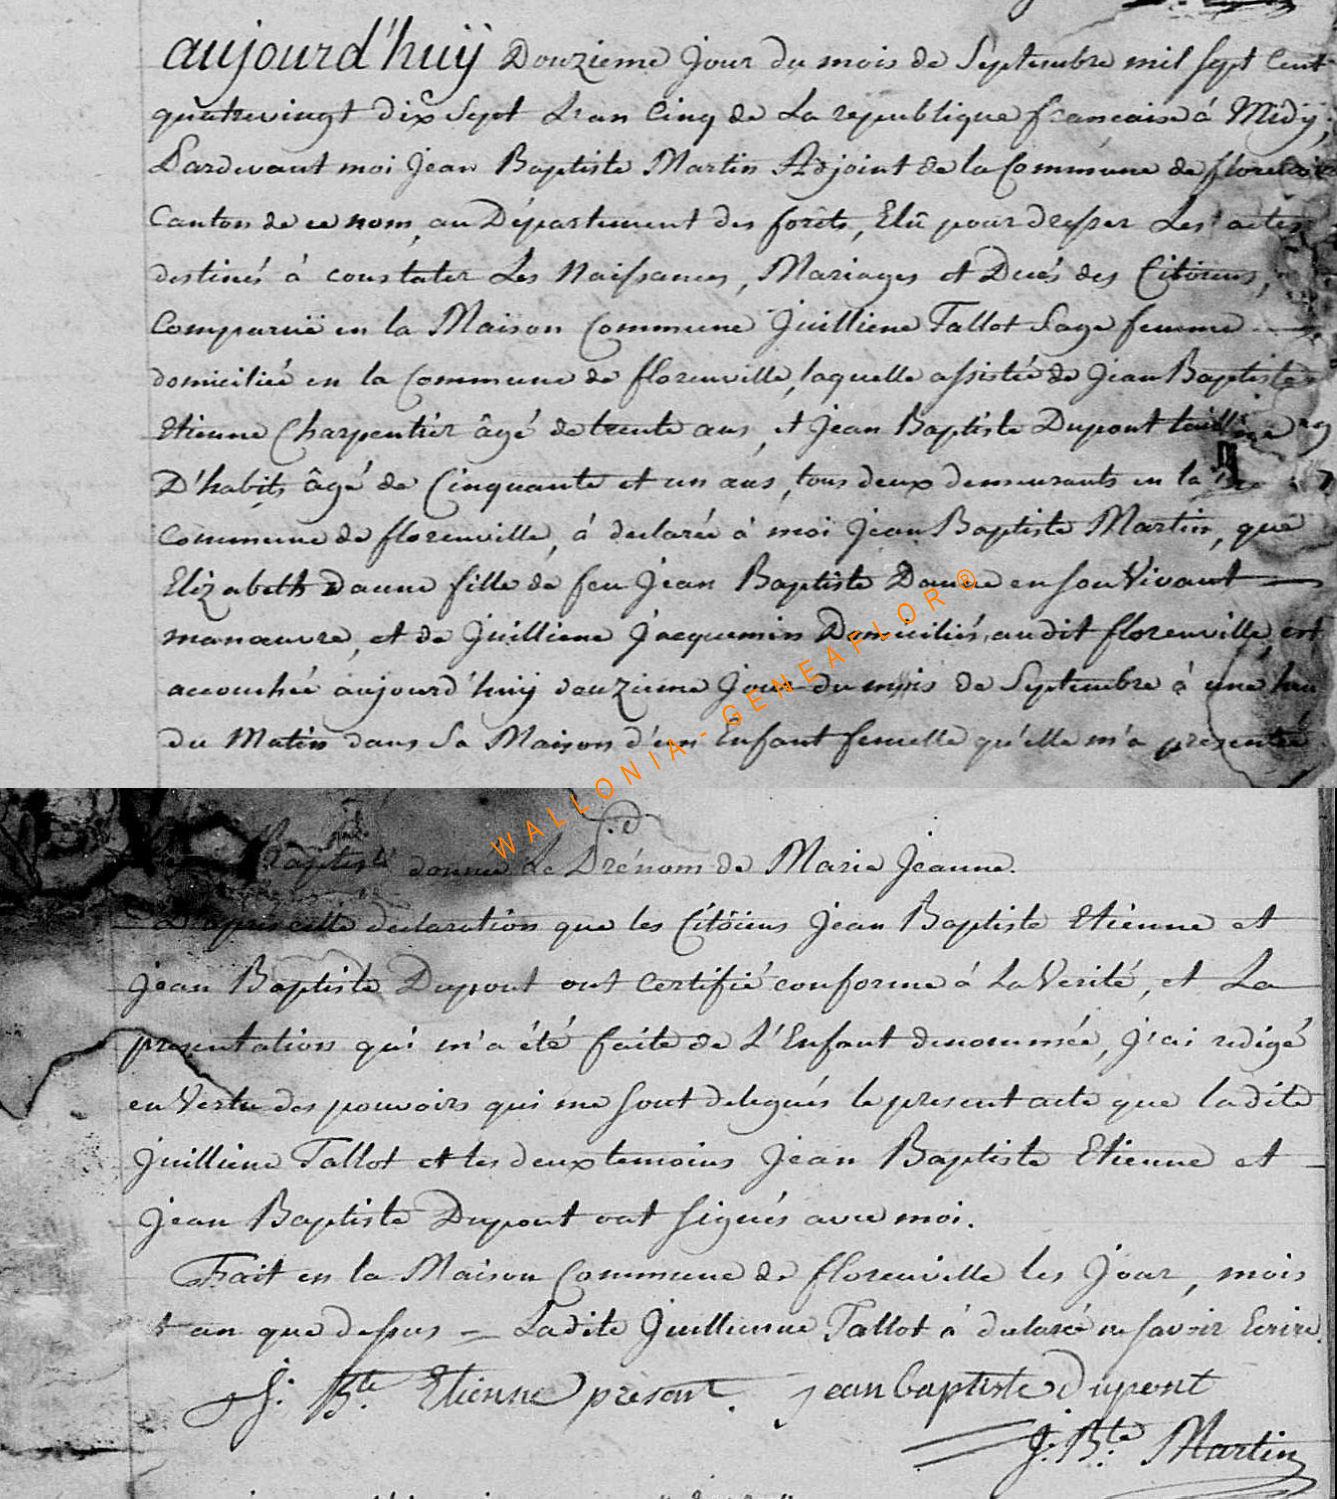 aujourd'huÿ Douzieme Jour du mois de Septembre mil sept Cent
quatrevingt dix Sept L'an Cinq de La republique francaise á Midÿ,
Pardevant moi Jean Baptiste Martin Adjoint de la Commune de
Canton de ce nom, au Département des forêts, Elû pour dresser Les actes
destinés à constater Les Naissances, Mariages et Decés des Citoiens,
Comparuë en la Maison Commune Juilliene Tallot Sage femme
domiciliée en la Commune de florenville, laquelle assistée de Jean Baptiste
Etienne Charpentier âgé de trente ans, et Jean Baptiste Dupont
D'habits âgé de Cinquante et un ans, tous deux demeurants en la
Commune de florenville, á declarée á moi Jean Baptiste Martin, que
Elizabeth Daune fille de feu Jean Baptiste Daune en son Vivant
manœuvre, et de Juilliene Jacquemin Domiciliés audit florenville, est
accouchée aujourd'huÿ douzieme Jour du mois de Septembre á une
du Matin dans Sa Maison d'un Enfant femelle qu'elle m'a presenté
WALLONIA-GENEAFLOR®
donné Le Prénom de Marie Jeanne.
D'après cette declaration que les Citöiens Jean Baptiste Etienne et
Jean Baptiste Dupont ont certifié conforme á La Verité, et La
presentation qui m'a été faite de L'Enfant denommée, J'ai redigé
en Vertu des pouvoirs qui me sont delegués le present acte que ladite
Juilliene Tallot et les deux temoins Jean Baptiste Etienne et
Jean Baptiste Dupont ont signés avec moi.
Fait en la Maison Commune de florenville les Jour, mois
& an que dessus = Ladite Juillienne Tallot á declaré ne savoir Ecrire.
J. Bte Etienne présent. jean baptiste Dupont
J. Bte Martin